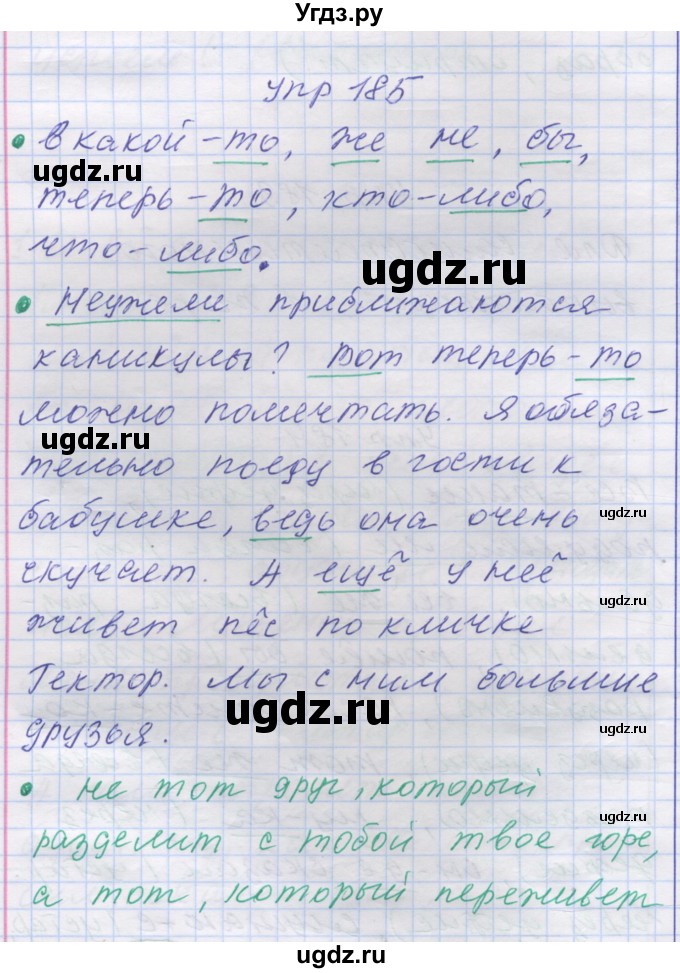 Угдз.ру
упр 185
• в какой-то, же не, бы,
угдz.ru
теперь-то, кто-либо,
что-либо.
ugdz.ru
• Неужели приближаются
каникулы? Вот теперь-то
можно помечтать. Я обяза-
ugdz.ru
тельно поеду в гости к
бабушке, ведь она очень
ugdz.ru
скучает. А ещё у неё
ugdz.ru
живет пёс по кличке
Гектор. Мы с ним большие
ugdz.ru
друзья.
• не тот друг, который
разделит с тобой твое горе,
а тот, который переживет
ugdz.ru